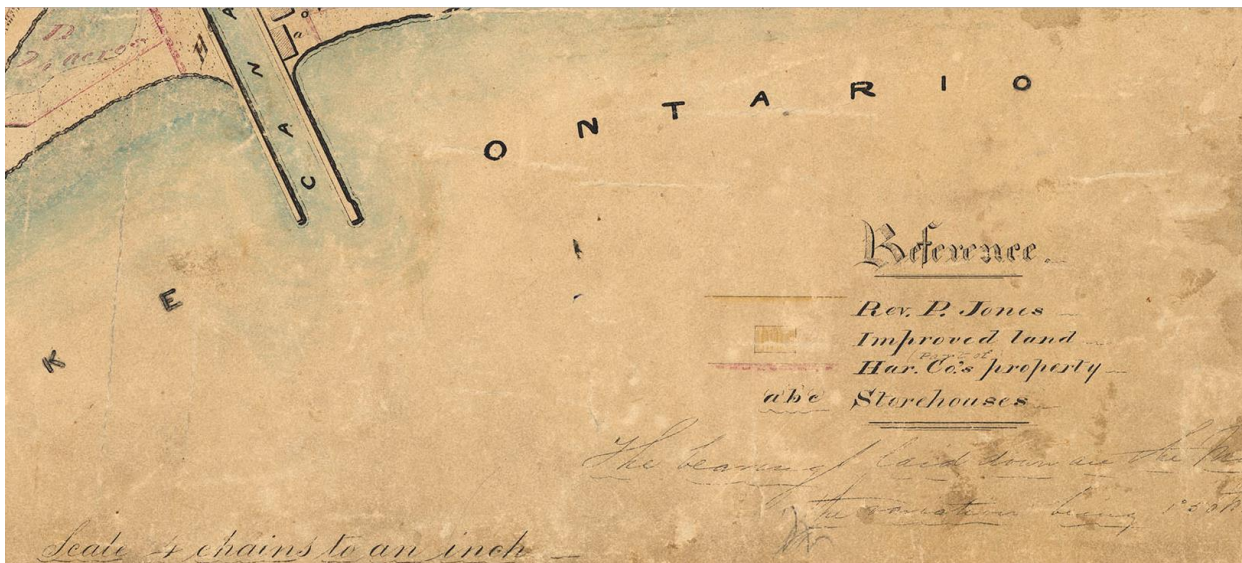 12
acres
H
A
N
A
C
a
ONTARIO
K E
Reference.
Rev. P. Jones
Improved land
part of
Har. Co.'s property
a b c Storehouses
The bearings laid down are the
the variation being 1°
Scale 4 chains to an inch